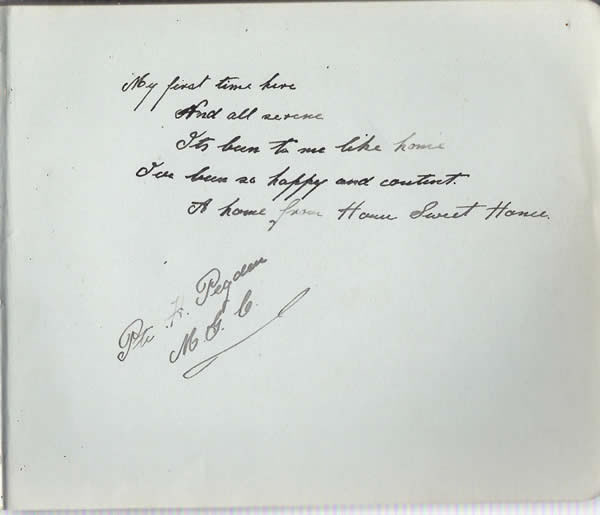 My first time here
And all serene
Its been to me like home
I've been so happy and content.
A home from Home Sweet Home.
Pte. H. Pegden
M. G. C.